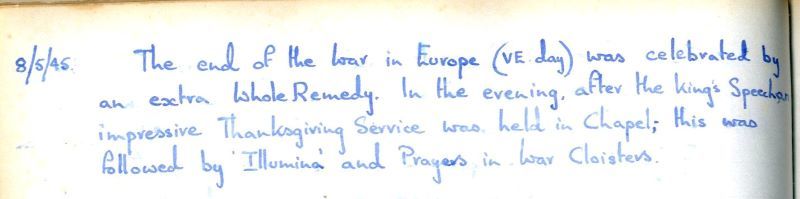 8/5/45. The end of the War in Europe (VE day) was celebrated by
an extra Whole Remedy. In the evening, after the King's Speech, an
impressive Thanksgiving Service was held in Chapel; this was
followed by 'Illumina' and Prayers in War Cloisters.